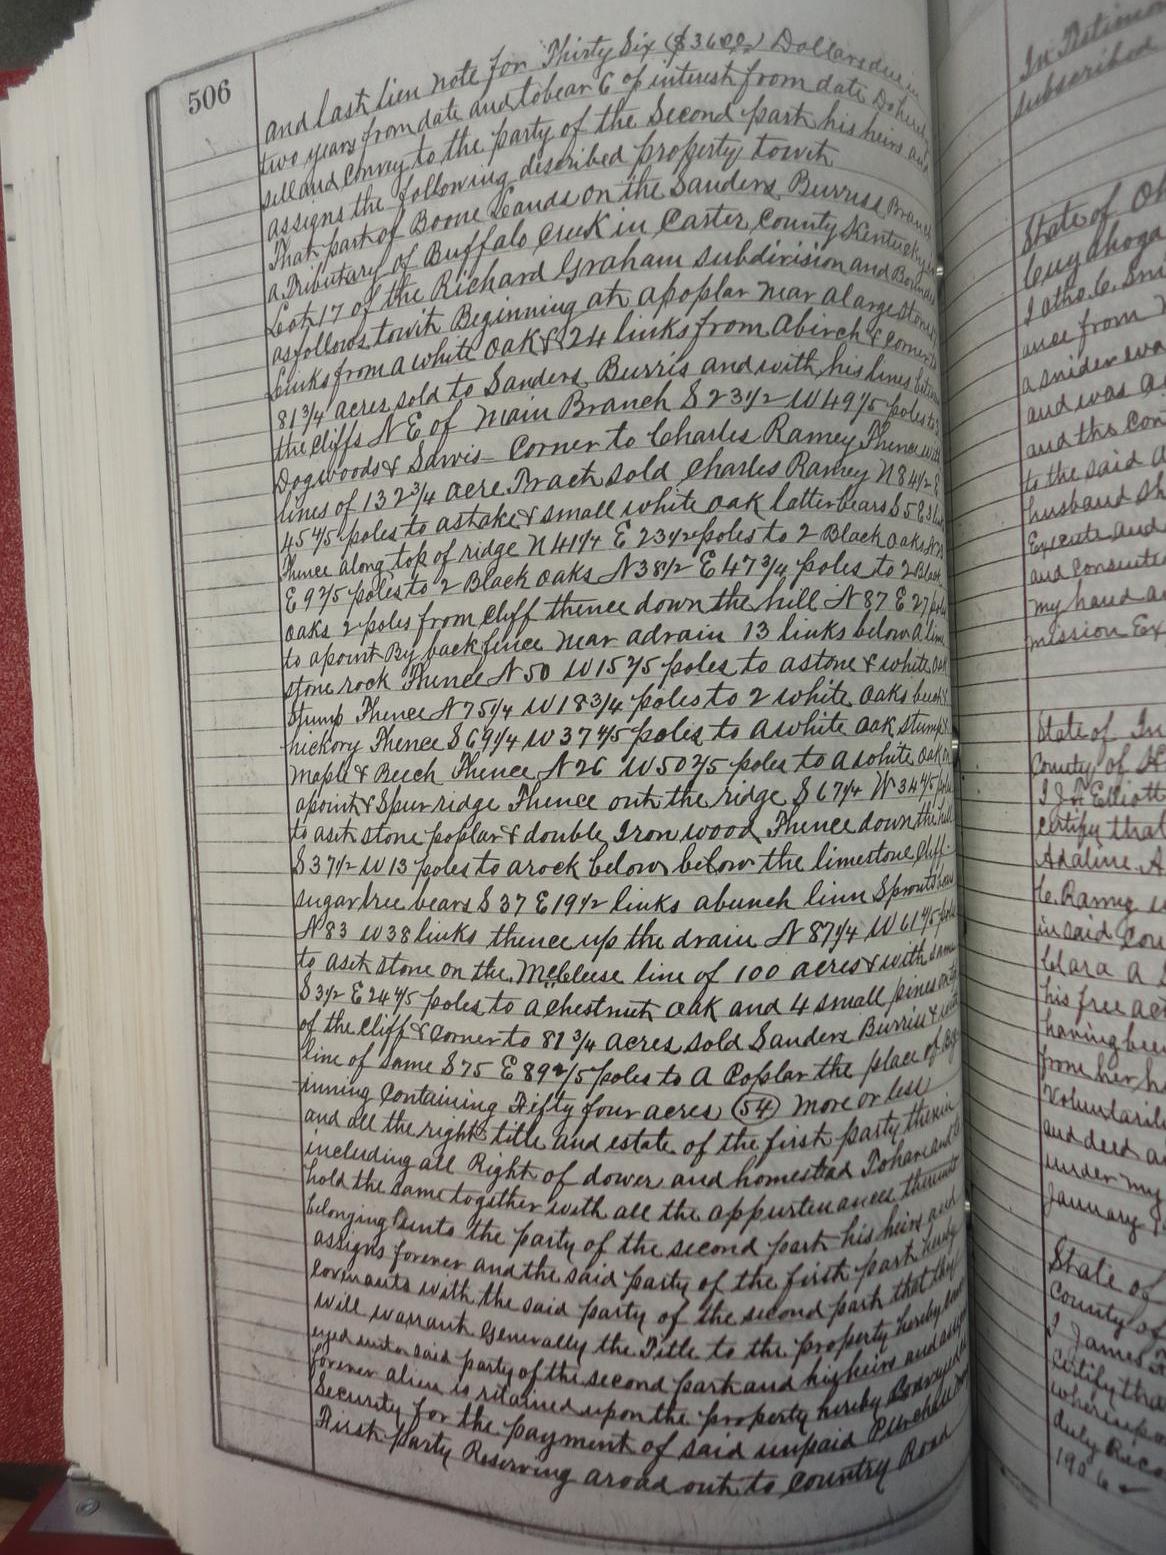 506
and last lien note for Thirty Six ($36.00) Dollars due in
two years from date and to bear 6 % interest from date Do hereby
sell and Convey to the party of the Second part his heirs and
assigns the following discribed property towit
That part of Boone Lands on the Sanders Burriss Branch
a Tributary of Buffalo Creek in Carter County Kentucky
Lot 17 of the Richard Graham subdivision and Bounded
as follows towit Beginning at a poplar near a large stone
links from a white oak & 24 links from a birch & Corner to
81 3/4 acres sold to Sanders Burris and with his lines
the Cliffs N E of Main Branch S 23 1/2 W 49 1/5 poles to
Dogwoods & Sarvis Corner to Charles Ramey Thence with
lines of 132 3/4 acre Tract sold Charles Ramey N 84 1/2 E
45 4/5 poles to a stake & small white oak latter bears S 5 E 3
Thence along top of ridge N 41 1/4 E 23 1/2 poles to 2 Black oaks
E 9 2/5 poles to 2 Black oaks N 38 1/2 E 47 3/4 poles to 2 Black
oaks 2 poles from Cliff thence down the hill N 87 E 27 poles
to a point By back fence near a drain 13 links below a lime
stone rock Thence N 50 W 15 2/5 poles to a stone & white oak
Stump Thence N 75 1/4 W 18 3/4 poles to 2 white oaks beech &
hickory Thence S 69 1/4 W 37 4/5 poles to a white oak stump
Maple & Beech Thence N 26 W 50 2/5 poles to a white oak on
a point & Spur ridge Thence out the ridge S 67 1/4 W 34 4/5 poles
to a set stone poplar & double Iron wood Thence down the hill
S 37 1/2 W 13 poles to a rock below below the limestone Cliff
sugar tree bears S 37 E 19 1/2 links a bunch linn Sprouts bears
N 83 W 38 links thence up the drain N 87 1/4 W 61 4/5 poles
to a set stone on the McGleese line of 100 acres & with same
S 3 1/2 E 24 4/5 poles to a chestnut oak and 4 small pines on top
of the Cliff & Corner to 81 3/4 acres sold Sanders Burriss & with
line of same S 75 E 89 2/5 poles to a Poplar the place of Beg
inning Containing Fifty four acres (54) more or less
and all the right title and estate of the first party therein
including all Right of dower and homestead To have and to
hold the same together with all the appurtenances thereunto
belonging unto the party of the second part his heirs and
assigns forever and the said party of the first part hereby
covinants with the said party of the second part that they
will warrant Generally the Title to the property hereby conv
eyed unto said party of the second part and his heirs and assigns
forever a lien is ritained upon the property hereby Conveyed as
Security for the payment of said unpaid Purchase money
First party Reserving a road out to Country Road
In Testimony
subscribed
State of Oh
Cuyahoga
ance from
a snider wa
and was a
and the con
to the said A
husband sh
Execute and
and Consente
my hand a
mission Ex
State of In
County of
I J H Elliott
certify that
Adaline A
in said Coun
Clara A
his free act
having bee
from her h
Voluntaril
and deed a
under my
January 1
State of
County of
I James
Certify tha
whereupo
duly Reco
1906